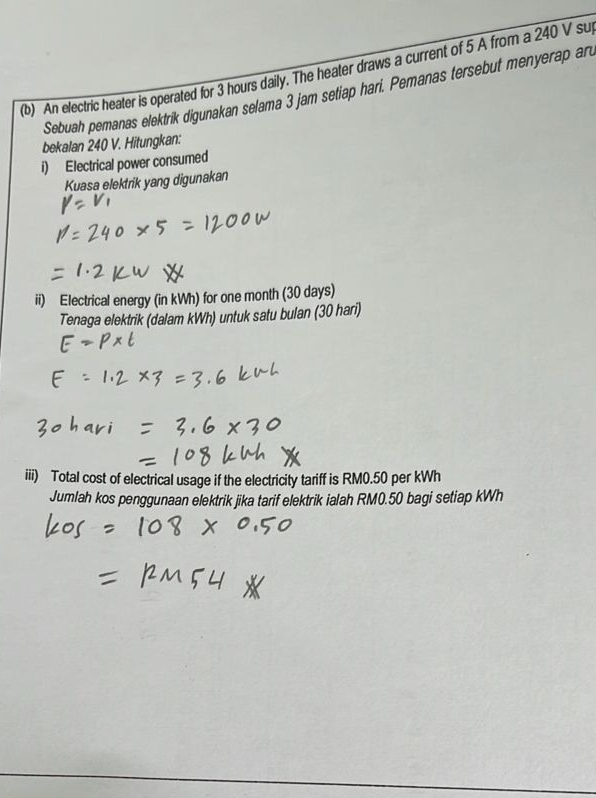 (b) An electric heater is operated for 3 hours daily. The heater draws a current of 5 A from a 240 V
Sebuah pemanas elektrik digunakan selama 3 jam setiap hari. Pemanas tersebut menyerap
bekalan 240 V. Hitungkan:
i) Electrical power consumed
Kuasa elektrik yang digunakan
P = VI
P = 240 x 5 = 1200W
= 1.2 KW
ii) Electrical energy (in kWh) for one month (30 days)
Tenaga elektrik (dalam kWh) untuk satu bulan (30 hari)
E = P x t
E = 1.2 x 3 = 3.6 kwh
30 hari = 3.6 x 30
= 108 kWh
iii) Total cost of electrical usage if the electricity tariff is RM0.50 per kWh
Jumlah kos penggunaan elektrik jika tarif elektrik ialah RM0.50 bagi setiap kWh
kos = 108 x 0.50
= RM54